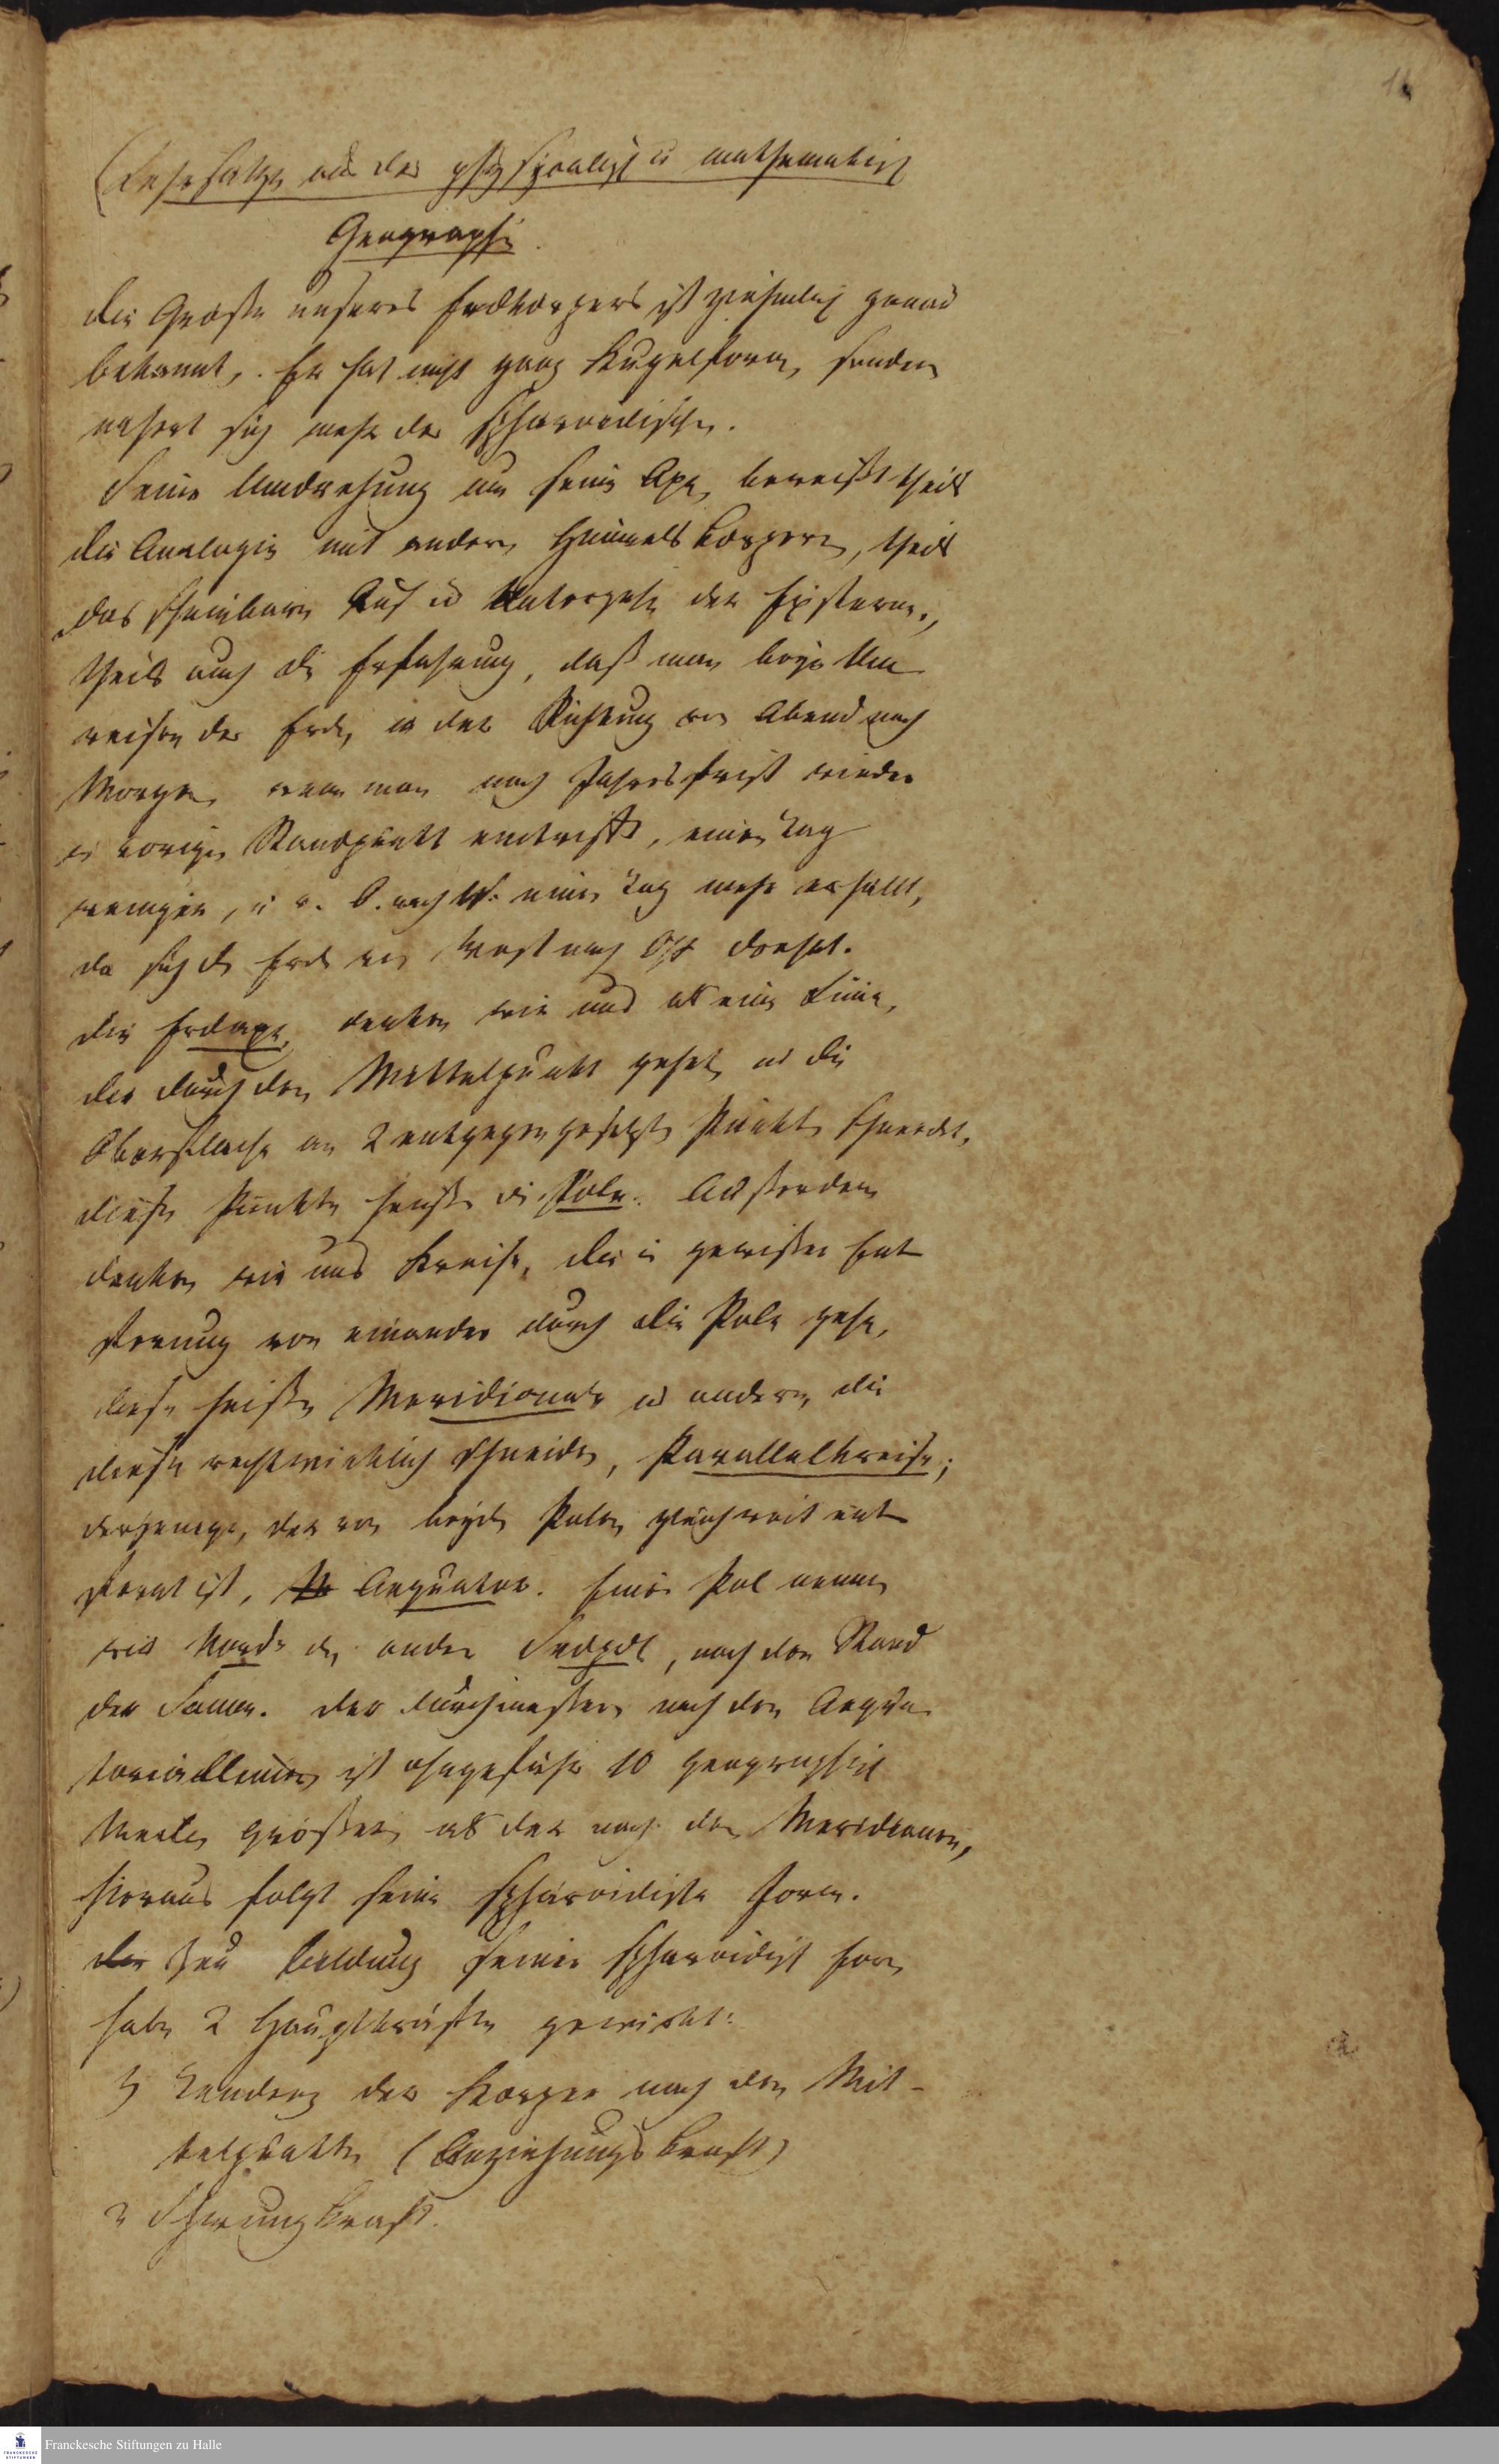 (Lehrsätze aus der physikalisch u mathematisch
Geographie.
Die Größe unseres Erdkörpers ist ziehmlich genau
bekannt,. Er hat nicht ganz Kugelform, sondern
nähert sich mehr der sphäroidischen.
Seine Umdrehung um seine Axe, beweißt theils
die Analogie mit andern Himmelskörpern, theils
das scheinbare Auf u Untergehn der Fixsterne,
theils auch die Erfahrung, daß man beym Um
reisen der Erde, in der Richtung von Abend nach
Morgen, wenn man nach Jahresfrist wieder
vorigen Standpunkt eintrifft, einen Tag
weniger, u v. O. nach W. einen Tag mehr erhällt,
da sich die Erde von West nach Ost drehet.
Die Erdaxe, denken wir uns als eine Linie,
die durch den Mittelpunkt gehet, u die
Oberfläche an 2 entgegengesetzte Punkte schneidet,
diese Punkte heißen die Pole. Außerdem
denken wir uns Kreise, die in gewisser Ent
fernung von einander durch die Pole gehn,
diese heißen Meridionale u andere, die
diese rechtwinklich schneiden, Parallelkreise;
derjenige, der von beyden Polen gleichweit ent
fernt ist, Aequator. Einen Pol nennen
wir Nord- den andern Südpol, nach dem Stand
der Sonne. Der Durchmesser nach den Aequa
toriallinien ist ohngefähr 10 geographisch
Meilen größer, als der nach den Meridianen,
hieraus folgt seine sphäroidische Form.
der Zur Bildung seiner sphäroidisch Form
haben 2 Hauptkräfte gewirkt:
1) Tendenz der Körper nach dem Mit-
telpunkte (Anziehungs Kraft)
2 Schwungkraft.
Franckesche Stiftungen zu Halle